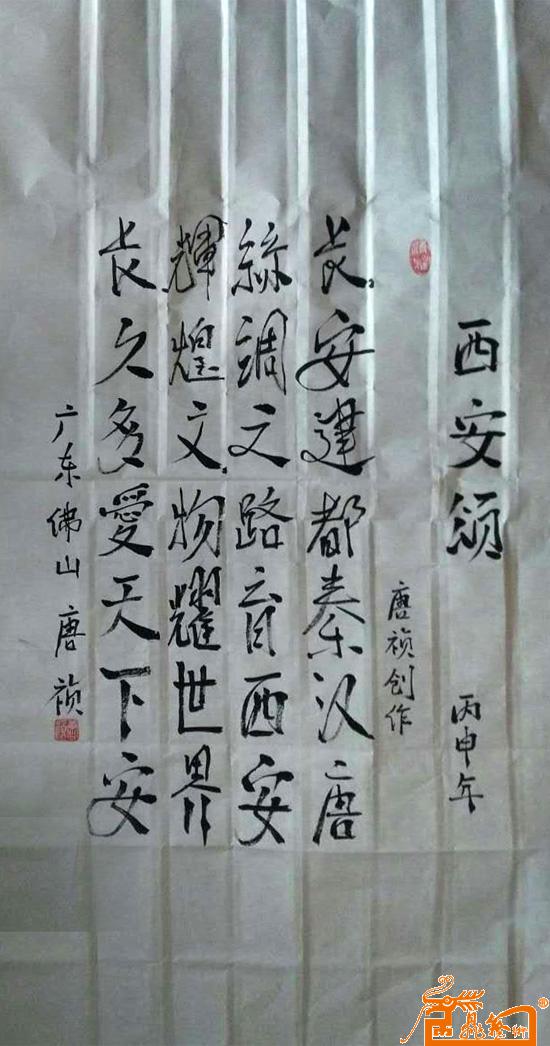 西安颂 丙申年
唐祯创作
长安建都秦汉唐
絲調之路育西安
輝煌文物耀世界
长久多愛天下安
广东佛山 唐祯